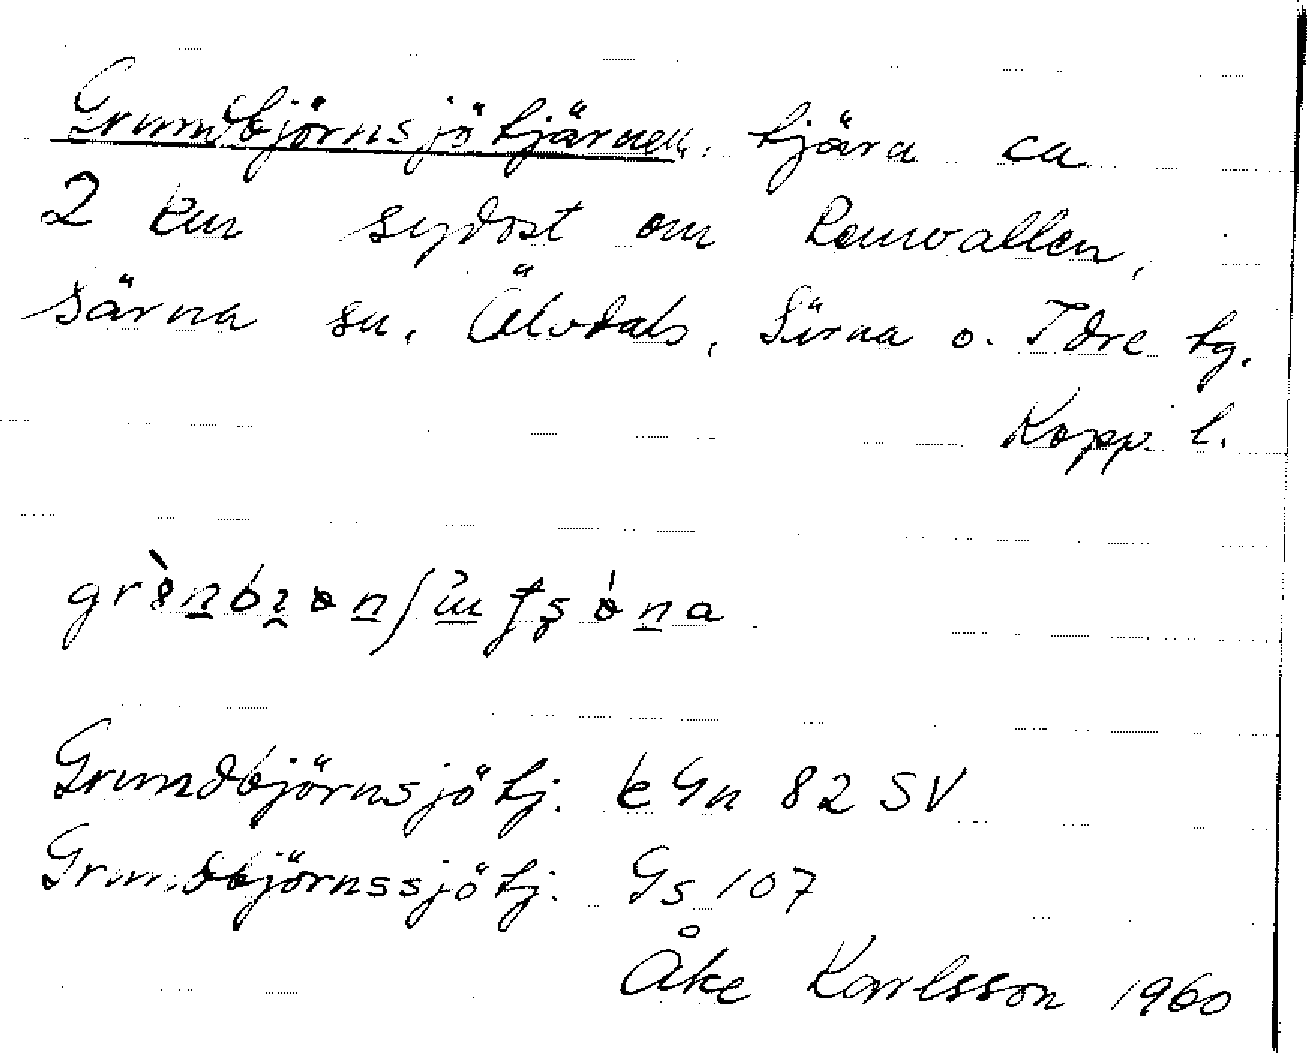 Grundbjörnsjötjärnen, tjärn ca
2 km sydost om Lemvallen,
Särna sn, Älvdals, Särna o. Idre tg.
Kopp. l.
Grundbjörnsjötj. eGn 82 SV
Grundbjörnssjötj. Gs 107
Åke Karlsson 1960